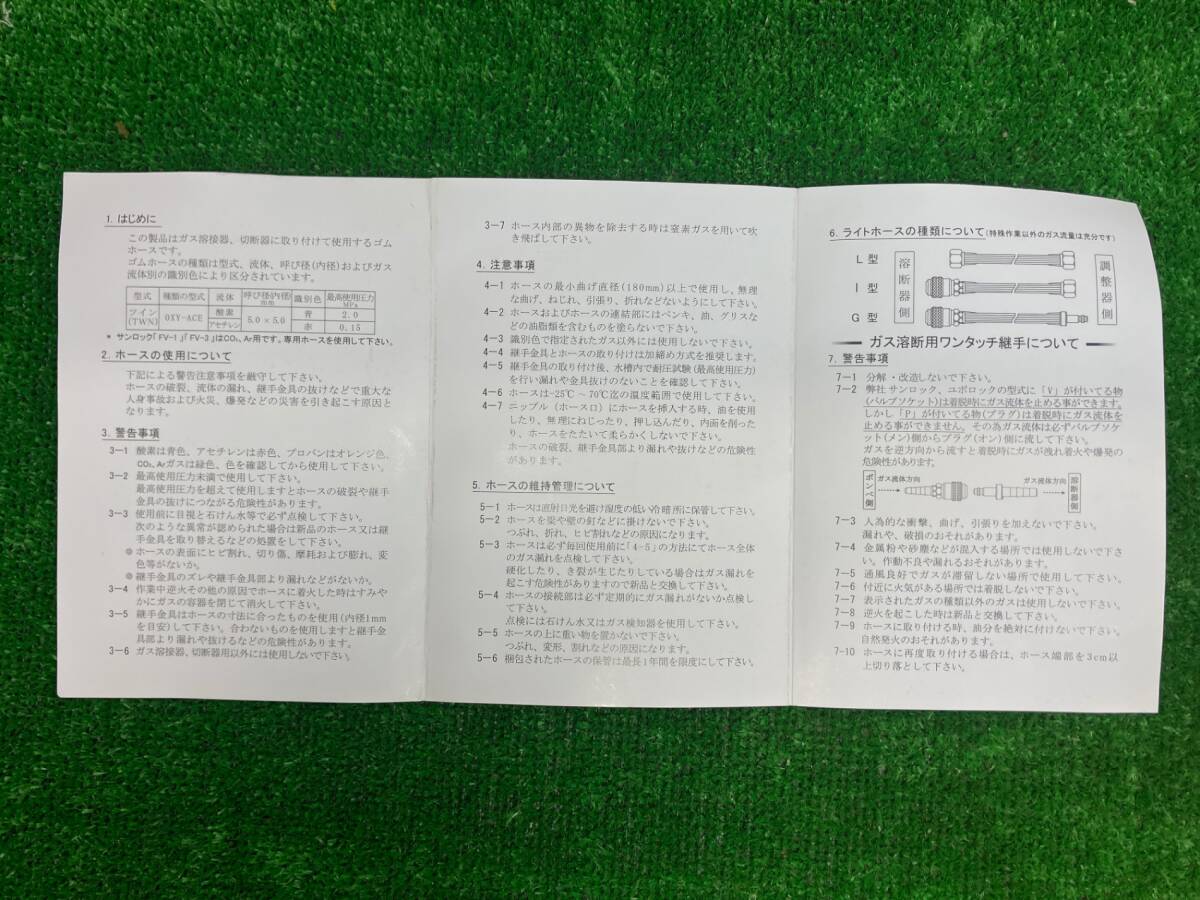 1. はじめに
この製品はガス溶接器、切断器に取り付けて使用するゴム
ホースです。
ゴムホースの種類は型式、流体、呼び径(内径)およびガス
流体別の識別色により区分されています。
型式 種類の型式 流体 呼び径(内径)mm 識別色 最高使用圧力MPa
ツイン(TWN) OXY-ACE 酸素 5.0×5.0 青 2.0
アセチレン 赤 0.15
* サンロック「FV-1」「FV-3」はCO₂、Ar用です。専用ホースを使用して下さい。
2. ホースの使用について
下記による警告注意事項を厳守して下さい。
ホースの破裂、流体の漏れ、継手金具の抜けなどで重大な
人身事故および火災、爆発などの災害を引き起こす原因と
なります。
3. 警告事項
3-1 酸素は青色、アセチレンは赤色、プロパンはオレンジ色、
CO₂、Arガスは緑色、色を確認してから使用して下さい。
3-2 最高使用圧力未満で使用して下さい。
最高使用圧力を超えて使用しますとホースの破裂や継手
金具の抜けにつながる危険性があります。
3-3 使用前に目視と石けん水等で必ず点検して下さい。
次のような異常が認められた場合は新品のホース又は継
手金具を取り替えるなどの処置をして下さい。
※ホースの表面にヒビ割れ、切り傷、摩耗および膨れ、変
色等がないか。
※継手金具のズレや継手金具部より漏れなどがないか。
3-4 作業中逆火その他の原因でホースに着火した時はすみや
かにガスの容器を閉じて消火して下さい。
3-5 継手金具はホースの寸法に合ったものを使用(内径1mm
を目安)して下さい。合わないものを使用しますと継手金
具部より漏れや抜けるなどの危険性があります。
3-6 ガス溶接器、切断器用以外には使用しないで下さい。
3-7 ホース内部の異物を除去する時は窒素ガスを用いて吹
き飛ばして下さい。
4. 注意事項
4-1 ホースの最小曲げ直径(180mm)以上で使用し、無理
な曲げ、ねじれ、引張り、折れなどないようにして下さい。
4-2 ホースおよびホースの連結部にはペンキ、油、グリスな
どの油脂類を含むものを塗らないで下さい。
4-3 識別色で指定されたガス以外には使用しないで下さい。
4-4 継手金具とホースの取り付けは加締め方式を推奨します。
4-5 継手金具の取り付け後、水槽内で耐圧試験(最高使用圧力)
を行い漏れや金具抜けのないことを確認して下さい。
4-6 ホースは-25℃～70℃迄の温度範囲で使用して下さい。
4-7 ニップル(ホース口)にホースを挿入する時、油を使用
したり、無理にねじったり、押し込んだり、内面を削った
り、ホースをたたいて柔らかくしないで下さい。
ホースの破裂、継手金具部より漏れや抜けなどの危険性
があります。
5. ホースの維持管理について
5-1 ホースは直射日光を避け湿度の低い冷暗所に保管して下さい。
5-2 ホースを梁や壁の釘などに掛けないで下さい。
つぶれ、折れ、ヒビ割れなどの原因になります。
5-3 ホースは必ず毎回使用前に「4-5」の方法にてホース全体
のガス漏れを点検して下さい。
硬化したり、き裂が生じたりしている場合はガス漏れを
起こす危険性がありますので新品と交換して下さい。
5-4 ホースの接続部は必ず定期的にガス漏れがないか点検し
て下さい。
点検には石けん水又はガス検知器を使用して下さい。
5-5 ホースの上に重い物を置かないで下さい。
つぶれ、変形、割れなどの原因になります。
5-6 梱包されたホースの保管は最長1年間を限度にして下さい。
6. ライトホースの種類について(特殊作業以外のガス流量は充分です)
L型
I型
G型
溶断器側
調整器側
ガス溶断用ワンタッチ継手について
7. 警告事項
7-1 分解・改造しないで下さい。
7-2 弊社サンロック、ユポロックの型式に「V」が付いてる物
(バルブソケット)は着脱時にガス流体を止める事ができます。
しかし「P」が付いてる物(プラグ)は着脱時にガス流体を
止める事ができません。その為ガス流体は必ずバルブソケ
ット(メン)側からプラグ(オン)側に流して下さい。
ガスを逆方向から流すと着脱時にガスが洩れ着火や爆発の
危険性があります。
ボンベ側 ガス流体方向 ガス流体方向 溶断器側
7-3 人為的な衝撃、曲げ、引張りを加えないで下さい。
漏れや、破損のおそれがあります。
7-4 金属粉や砂塵などが混入する場所では使用しないで下さ
い。作動不良や漏れるおそれがあります。
7-5 通風良好でガスが滞留しない場所で使用して下さい。
7-6 付近に火気がある場所では着脱しないで下さい。
7-7 表示されたガスの種類以外のガスは使用しないで下さい。
7-8 逆火を起こした時は新品と交換して下さい。
7-9 ホースに取り付ける時、油分を絶対に付けないで下さい。
自然発火のおそれがあります。
7-10 ホースに再度取り付ける場合は、ホース端部を3cm以
上切り落として下さい。